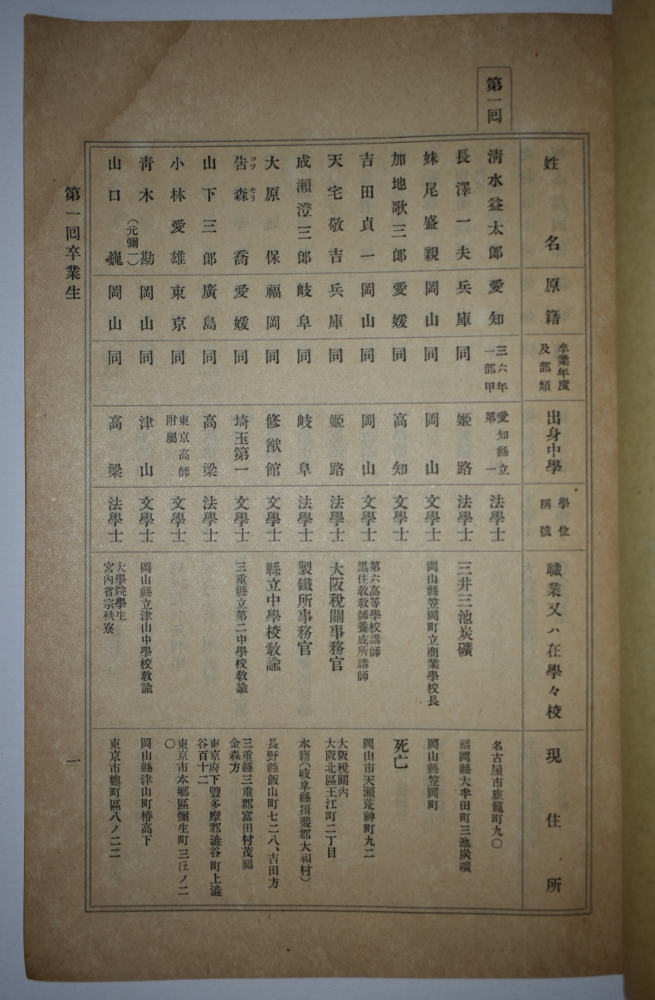 第一回
姓名 原籍 卒業年度及部類 出身中學 學位稱號 職業又ハ在學々校 現住所
淸水益太郎 愛知 三六年一部甲 愛知縣立第一 法學士 名古屋市旅籠町九〇
長澤一夫 兵庫 同 姬路 法學士 三井三池炭礦 福岡縣大牟田町三池炭礦
妹尾盛親 岡山 同 岡山 文學士 岡山縣笠岡町立商業學校長 岡山縣笠岡町
加地歌三郎 愛媛 同 高知 文學士 死亡
吉田貞一 岡山 同 岡山 文學士 第六高等學校講師 黑住敎敎師養成所講師 岡山市天瀨荒神町九二
天宅敬吉 兵庫 同 姬路 法學士 大阪稅關事務官 大阪稅關內 大阪北區玉江町二丁目
成瀨澄三郎 岐阜 同 岐阜 法學士 製鐵所事務官 本籍(岐阜縣揖斐郡大和村)
大原保 福岡 同 修猷館 文學士 縣立中學校敎諭 長野縣飯山町七二八、吉田方
告森喬 コツモリ 愛媛 同 埼玉第一 文學士 三重縣立第二中學校敎諭 三重縣三重郡富田村茂福 金森方
山下三郎 廣島 同 高梁 法學士 東京府下豐多摩郡澁谷町上澁谷百十二
小林愛雄 東京 同 東京高師附屬 文學士 東京市本鄕區彌生町三ほノ二〇
靑木勘(元彌一) 岡山 同 津山 文學士 岡山縣立津山中學校敎諭 岡山縣津山町椿高下
山口巍 岡山 同 高梁 法學士 大學院學生 宮內省宗秩寮 東京市麴町區八ノ二二
第一回卒業生
一